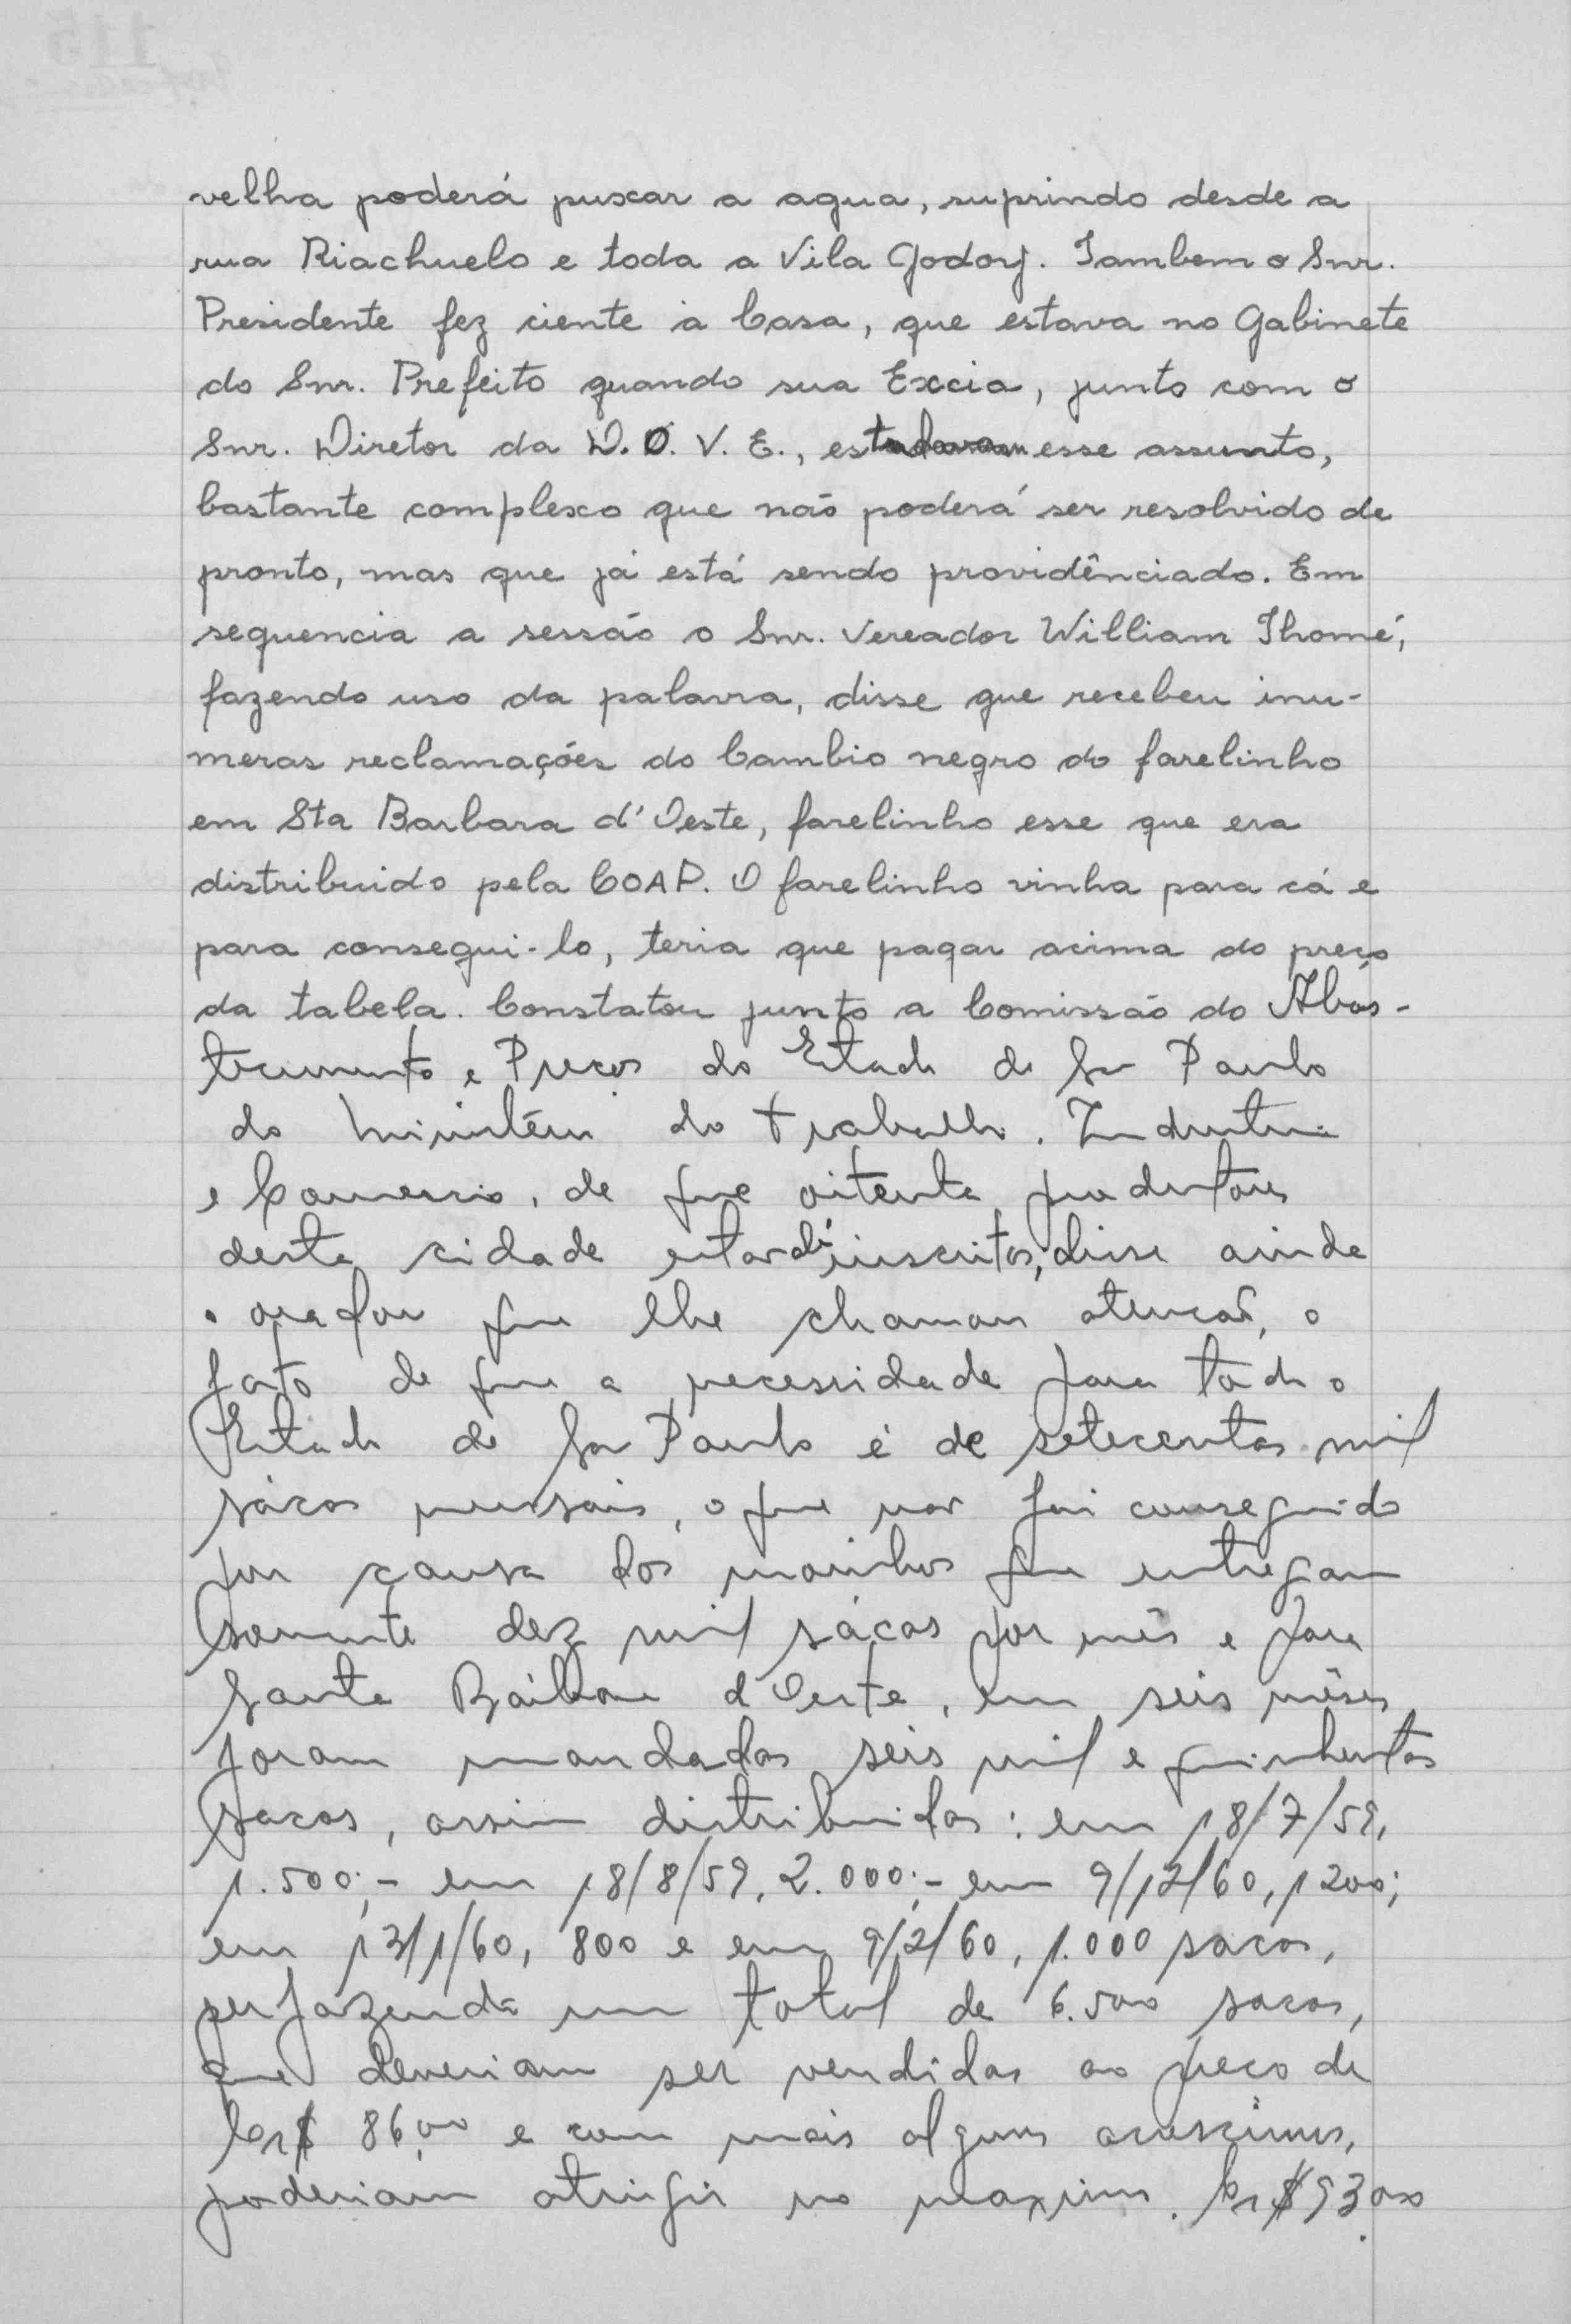 velha poderá puxar a agua, suprindo desde a
rua Riachuelo e toda a Vila Godoy. Tambem o Snr.
Presidente fez ciente à Casa, que estava no Gabinete
do Snr. Prefeito quando sua Excia, junto com o
Snr. Diretor da D.O.V.E., estudavam esse assunto,
bastante complexo que não poderá ser resolvido de
pronto, mas que já está sendo providênciado. Em
sequencia a sessão o Snr. Vereador William Thomé,
fazendo uso da palavra, disse que recebeu inu-
meras reclamações do Cambio negro do farelinho
em Sta Barbara d'Oeste, farelinho esse que era
distribuido pela COAP. O farelinho vinha para cá e
para consegui-lo, teria que pagar acima do preço
da tabela. Constatou junto a Comissão do Abas-
tecimento e Preços do Estado de São Paulo
do Ministério do Trabalho. Industria
e Comercio, de que oitenta produtores
desta cidade inscritos, disse ainda
o orador que lhe chamou atenção, o
fato de que a necessidade para todo o
Estado de São Paulo é de setecentos mil
sácos mensais, o que não foi conseguido
por causa dos moinhos que entregam
somente dez mil sácos por mês e para
Santa Bárbara d'Oeste, em seis mêses
foram mandados seis mil e quinhentos
sacos, assim distribuidos: em 18/7/59,
1.500;- em 18/8/59, 2.000;- em 9/12/60, 1200;
em 13/1/60, 800 e em 9/2/60, 1.000 sacos,
perfazendo um total de 6.500 sacos,
que deveriam ser vendidos ao preço de
Cr$ 86,00 e com mais alguns acrescimos,
poderiam atingir no maximo. Cr$ 93,00